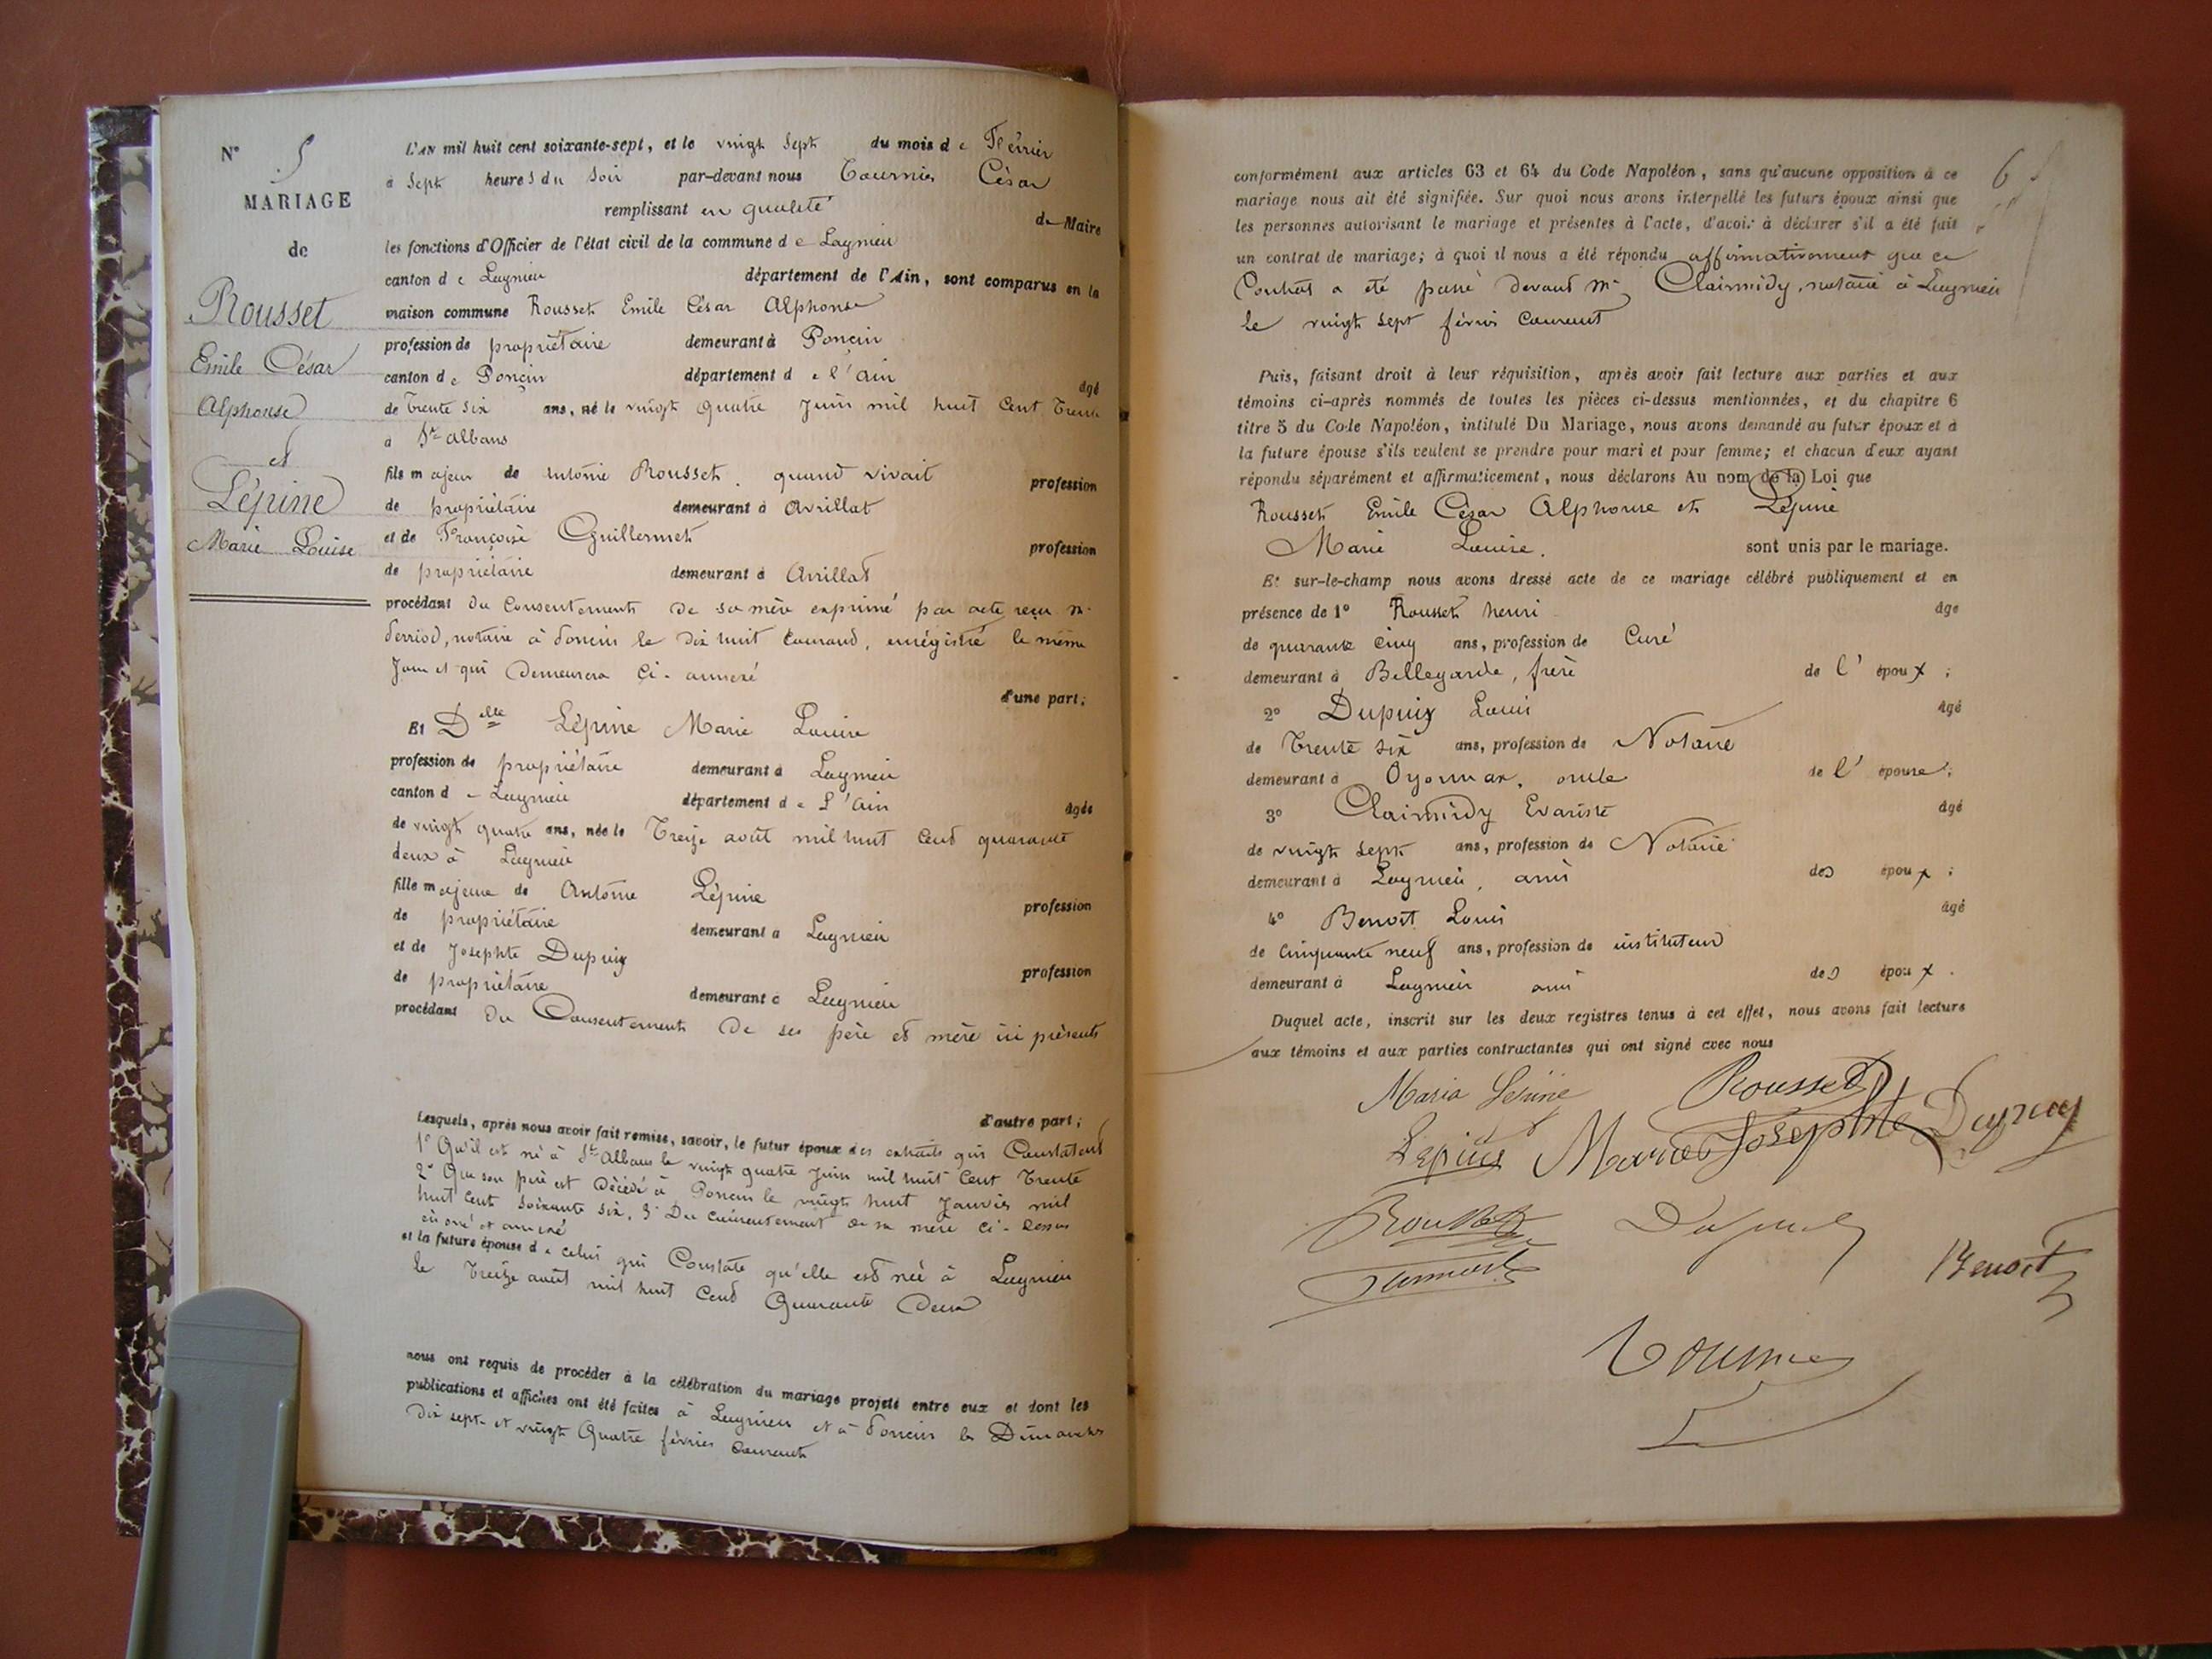 N° 5
MARIAGE
de
Rousset
Emile César
Alphonse
et
Lépine
Marie Louise
L'AN mil huit cent soixante-sept, et le vingt sept du mois de Février
à sept heures du soir par-devant nous Tournier César
remplissant en qualité de Maire
les fonctions d'Officier de l'état civil de la commune de Lagnieu
canton de Lagnieu département de l'Ain, sont comparus en la
maison commune Rousset Emile César Alphonse
profession de propriétaire demeurant à Poncin
canton de Poncin département de l'ain âgé
de trente six ans, né le vingt quatre Juin mil huit cent trente
à St albans
fils majeur de Antoine Rousset quand vivait profession
de propriétaire demeurant à Avrillat
et de Françoise Guillermet profession
de propriétaire demeurant à Avrillat
procédant du consentement de sa mère exprimé par acte reçu Me
notaire à Poncin le dix huit courant, enrégistré le même
jour et qui demeurera ci-annexé
d'une part;
Et Delle Lépine Marie Louise
profession de propriétaire demeurant à Lagnieu
canton de Lagnieu département de l'ain âgée
de vingt quatre ans, née le treize août mil huit cent quarante
deux à Lagnieu
fille majeure de Antoine Lépine profession
de propriétaire demeurant à Lagnieu
et de Josephte Dupuy profession
de propriétaire demeurant à Lagnieu
procédant du Consentement de ses père et mère ici présents
d'autre part;
Lesquels, après nous avoir fait remise, savoir, le futur époux des extraits qui Constatent
1° Qu'il est né à St Albans le vingt quatre Juin mil huit cent trente
2° Que son père est décédé à Poncin le vingt huit Janvier mil
huit cent soixante six, 3° Du consentement de sa mère ci-dessus
énoncé et annexé
et la future épouse de celui qui Constate qu'elle est née à Lagnieu
le treize août mil huit cent Quarante deux
nous ont requis de procéder à la célébration du mariage projeté entre eux et dont les
publications et affiches ont été faites à Lagnieu et à Poncin les Dimanches
dix sept et vingt Quatre février courant
6
conformément aux articles 63 et 64 du Code Napoléon, sans qu'aucune opposition à ce
mariage nous ait été signifiée. Sur quoi nous avons interpellé les futurs époux ainsi que
les personnes autorisant le mariage et présentes à l'acte, d'avoir à déclarer s'il a été fait
un contrat de mariage; à quoi il nous a été répondu affirmativement que ce
Contrat a été passé devant Me Clairmidy, notaire à Lagnieu
le vingt sept février courant
Puis, faisant droit à leur réquisition, après avoir fait lecture aux parties et aux
témoins ci-après nommés de toutes les pièces ci-dessus mentionnées, et du chapitre 6
titre 5 du Code Napoléon, intitulé Du Mariage, nous avons demandé au futur époux et à
la future épouse s'ils veulent se prendre pour mari et pour femme; et chacun d'eux ayant
répondu séparément et affirmativement, nous déclarons Au nom de la Loi que
Rousset Emile César Alphonse et Lépine
Marie Louise. sont unis par le mariage.
Et sur-le-champ nous avons dressé acte de ce mariage célébré publiquement et en
présence de 1° Rousset henri âgé
de quarante cinq ans, profession de Curé
demeurant à Bellegarde, frère de l'époux ;
2° Dupuy Louis âgé
de trente six ans, profession de Notaire
demeurant à Oyonnax, oncle de l'épouse ;
3° Clairmidy Evariste âgé
de vingt sept ans, profession de Notaire
demeurant à Lagnieu, ami des époux ;
4° Benoit Louis âgé
de Cinquante neuf ans, profession de instituteur
demeurant à Lagnieu ami des époux .
Duquel acte, inscrit sur les deux registres tenus à cet effet, nous avons fait lecture
aux témoins et aux parties contractantes qui ont signé avec nous
Maria Lépine Rousset
Lepine Marie Josephte Dupuy
Rousset Dupuy Benoit
Tournier